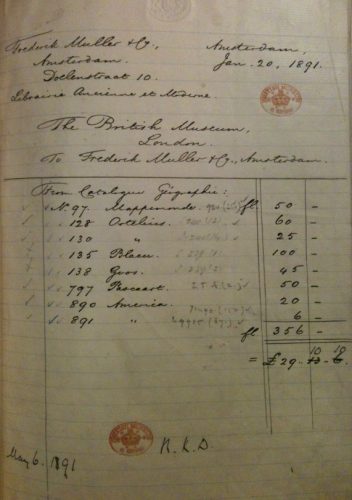 Frederick Muller & Co., Amsterdam,
Amsterdam. Jan. 20, 1891.
Doelenstraat 10.
Librairie Ancienne et Moderne.
The British Museum,
London.
To Frederick Muller & Co., Amsterdam.
From Catalogue Géographie:
No. 97. Mappemonde fl. 50 –
128 Ortelius 60 –
130 " 25 –
135 Blaeu 100 –
138 Goos 45 –
797 Pascaart 50 –
890 America 20 –
891 " 6 –
fl. 356 –
10 10
= £29. 13 - 6.
May 6. 1891 R. K. D.